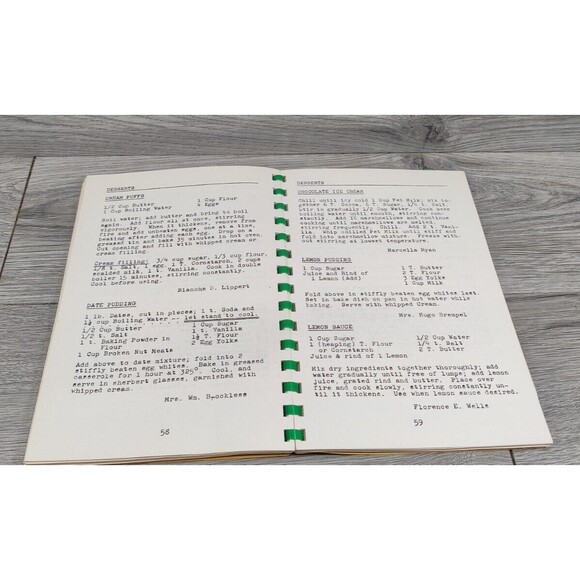 DESSERTS
CREAM PUFFS
1/2 Cup Butter 1 Cup Flour
1 Cup Boiling Water 4 Eggs
Boil water; add butter and bring to boil
again. Add flour all at once, stirring
vigorously. When it thickens, remove from
fire and add unbeaten eggs, one at a time,
beating after adding each egg. Drop on a
greased tin and bake 35 minutes in hot oven.
Cut opening and fill with whipped cream or
cream filling.
Cream filling: 3/4 cup sugar, 1/3 cup flour,
1/8 t. Salt, 1 egg, 1 T. Cornstarch, 2 cups
scalded milk, 1 t. Vanilla. Cook in double
boiler 15 minutes, stirring constantly.
Cool before using.
Blanche D. Lippert
DATE PUDDING
1 lb. Dates, cut in pieces; 1 t. Soda and
1½ cup Boiling Water -- let stand to cool.
1/2 Cup Butter 1 Cup Sugar
1/2 t. Salt 1 t. Vanilla
1 t. Baking Powder in 1½ T. Flour
Flour 2 Egg Yolks
1 Cup Broken Nut Meats
Add above to date mixture; fold into 2
stiffly beaten egg whites. Bake in greased
casserole for 1 hour at 325°. Cool, and
serve in sherbert glasses, garnished with
whipped cream.
Mrs. Wm. Brockless
58
DESSERTS
CHOCOLATE ICE CREAM
Chill until icy cold 1 Cup Pet Milk; mix to-
gether 6 T. Cocoa, 6 T. Sugar, 1/4 t. Salt.
Stir in gradually 1/2 Cup Water. Cook over
boiling water until smooth, stirring con-
stantly. Add 10 marshmallows and continue
cooking until marshmallows are melted,
stirring frequently. Chill. Add 2 t. Vanil-
la. Whip chilled Pet Milk until stiff and
fold into marshmallow mixture. Freeze with-
out stirring at lowest temperature.
Marcella Ryan
LEMON PUDDING
1 Cup Sugar 1 T. Butter
Juice and Rind of 1 T. Flour
1 Lemon (Add) 3 Egg Yolks
1 Cup Milk
Fold above in stiffly beaten egg whites last
Set in bake dish on pan in hot water while
baking. Serve with whipped Cream.
Mrs. Hugo Grempel
LEMON SAUCE
1 Cup Sugar 1/2 Cup Water
1 (heaping) T. Flour 1/4 t. Salt
or Cornstarch 2 T. Butter
Juice & rind of 1 Lemon
Mix dry ingredients together thoroughly; add
water gradually until free of lumps; add lemon
juice, grated rind and butter. Place over
fire and cook slowly, stirring constantly un-
til it thickens. Use when lemon sauce desired.
Florence E. Wells
59